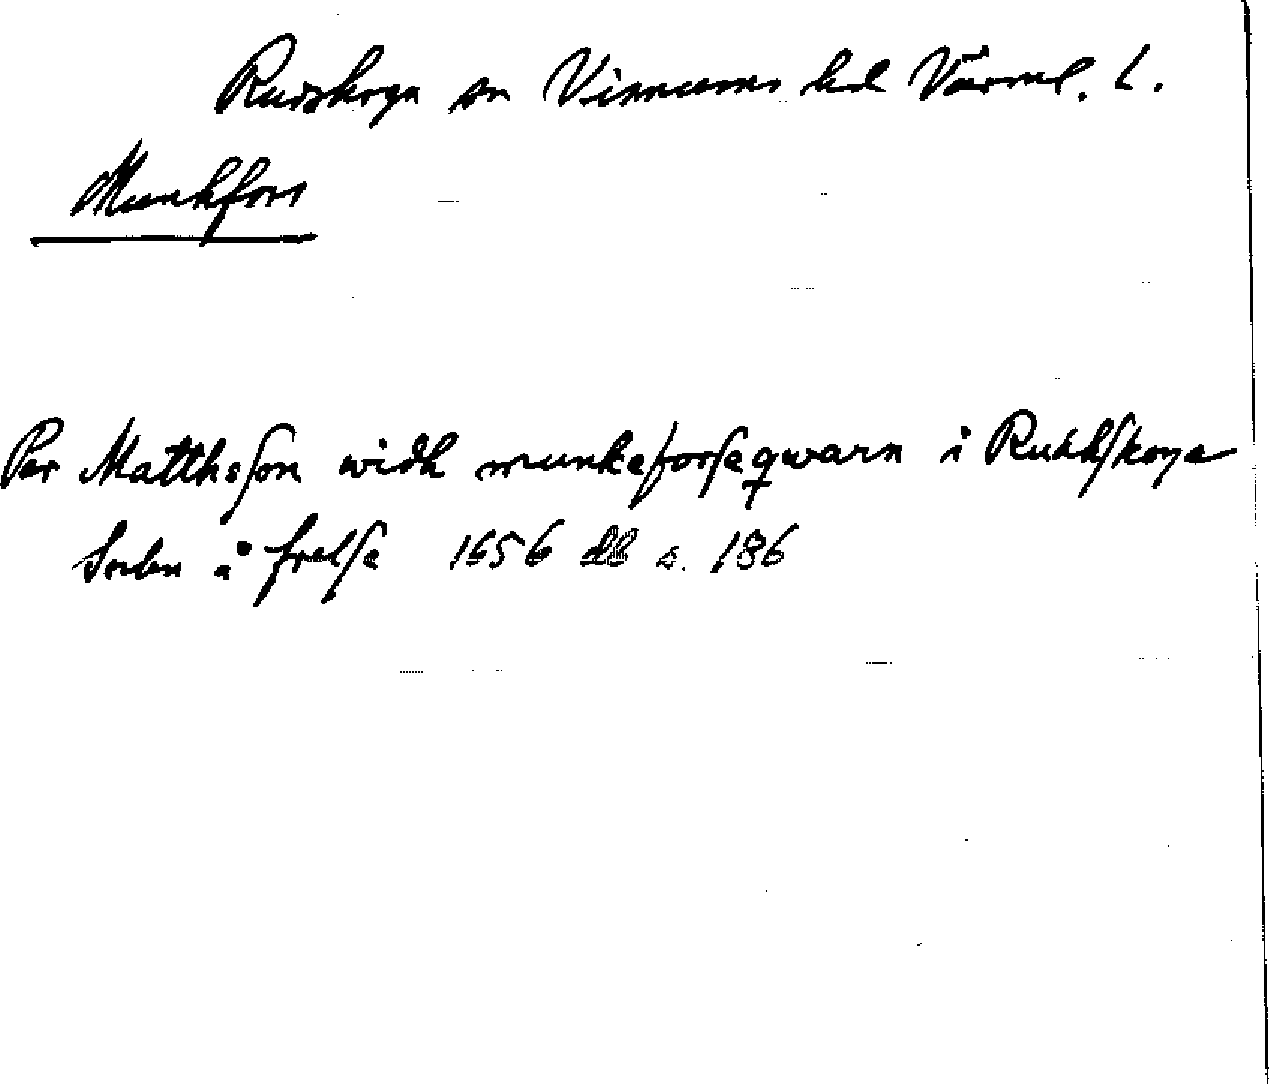 Rudskoga sn Visnums hd Värml. L.
Munkfors
Per Matthsson widh munkeforsseqwarn i Rudhskoga
Sochn å frelse 1656 db s. 186